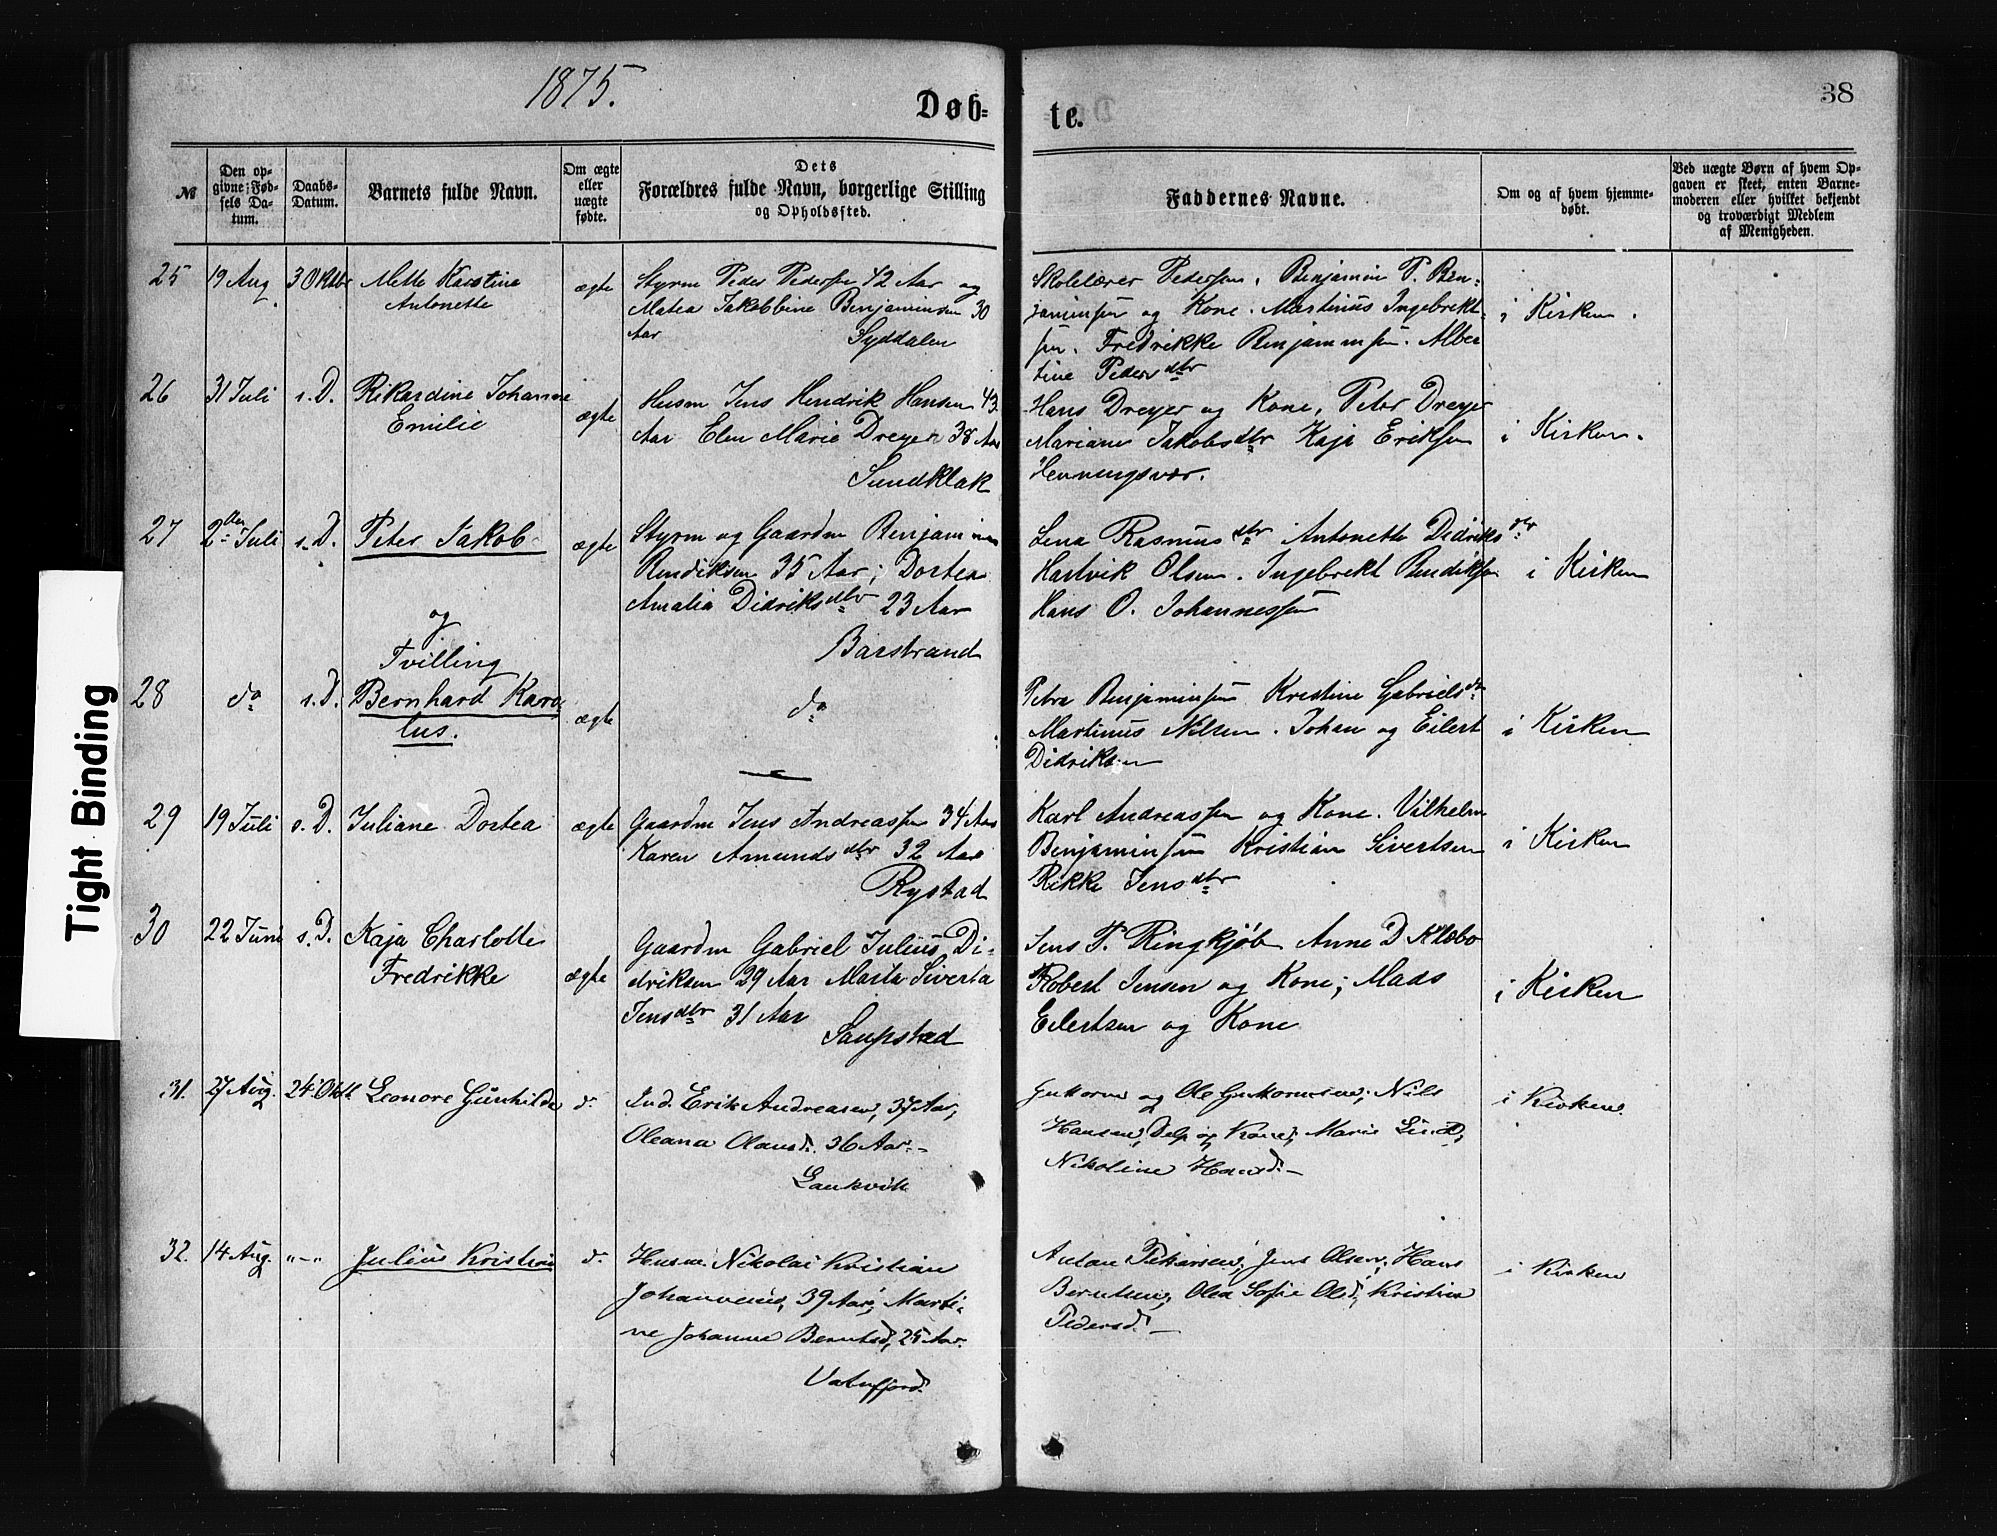 1875.
Døb-
te.
38
№
Den op-
givne Fød-
sels Da-
tum.
Daabs-
Datum.
Barnets fulde Navn.
Om ægte
eller
uægte
fødte.
Dets
Forældres fulde Navn, borgerlige Stilling
og Opholdssted.
Faddernes Navne.
Om og af hvem hjemme-
døbt.
Ved uægte Børn af hvem Op-
gaven er skeet, enten Barne-
moderen eller hvilket bekjendt
og troværdigt Medlem
af Menigheden.
25
19 Aug
3 Oktbr
Mette Karstine
Antonette
ægte
Styrm Peder Pedersen 42 Aar og
Matea Jakobbine Benjaminsen 30
Aar
Syddalen
Skolelærer Pedersen. Benjamin P. Ben-
jaminsen og Kone. Martinus Ingebrikt-
sen. Fredrikke Benjaminsen. Alber
tine Pedersdtr
i Kirken.
26
31 Juli
s. D.
Rikardine Johanne
Emilie
ægte
Husm Jens Hendrik Hansen 43
Aar Elen Marie Dreyer 38 Aar
Sundklak
Hans Dreyer og Kone, Peter Dreyer
Mariane Jakobsdtr Kaja Eriksen
Henningsvær.
i Kirken.
27
2den Juli
s. D.
Peter Jakob
ægte
Styrm og Gaardm Benjamin
Bendiksen 35 Aar; Dortea
Amalia Didriksdtr 23 Aar
Barstrand
Lena Rasmusdtr Antonette Didriksdtr
Hartvik Olsen. Ingebrekt Bendiksen
Hans O. Johannessen
i Kirken
og
Tvilling
28
do
s. D.
Bernhard Karo-
lus.
ægte
do
Petra Benjaminsen Kristine Gabrielsdtr
Martinus Nilsen. Johan og Eilert
Didriksen
i Kirken
29
19 Juli
s. D.
Juliane Dortea
ægte
Gaardm Jens Andreassen 34 Aar
Karen Amundsdtr 32 Aar
Rystad
Karl Andreassen og Kone. Vilhelm
Benjaminsen Kristian Sivertsen
Rikke Jensdtr
i Kirken
30
22 Juni
s. D.
Kaja Charlotte
Fredrikke
ægte
Gaardm Gabriel Julius Di-
driksen 29 Aar Marta Siverta
Jensdtr 31 Aar
Saupstad
Jens T. Ringkjøb Anne D Klæbo
Robert Jensen og Kone; Mads
Eilertsen og Kone
i Kirken
31.
27 Aug.
24. Oktb.
Leonore Gunhilde
d.
Ind. Erik Andreasen, 37 Aar,
Oleana Olausd. 36 Aar. -
Laukvik
og Ole Nils
Hansen, Delp og Kone; Marie
Nikoline Hansd. -
i Kirken
32.
14 Aug.
"-"
Julius Kristian
d.
Husm. Nikolai Kristian
Johannesen, 39 Aar; Marti-
ne Johanne Berntsd, 25 Aar.
Vaterfjord.
Anton Jens Olsen, Hans
Berntsen, Olea Sofie Olsd, Kristine
Pedersd. -
i Kirken
Tight Binding